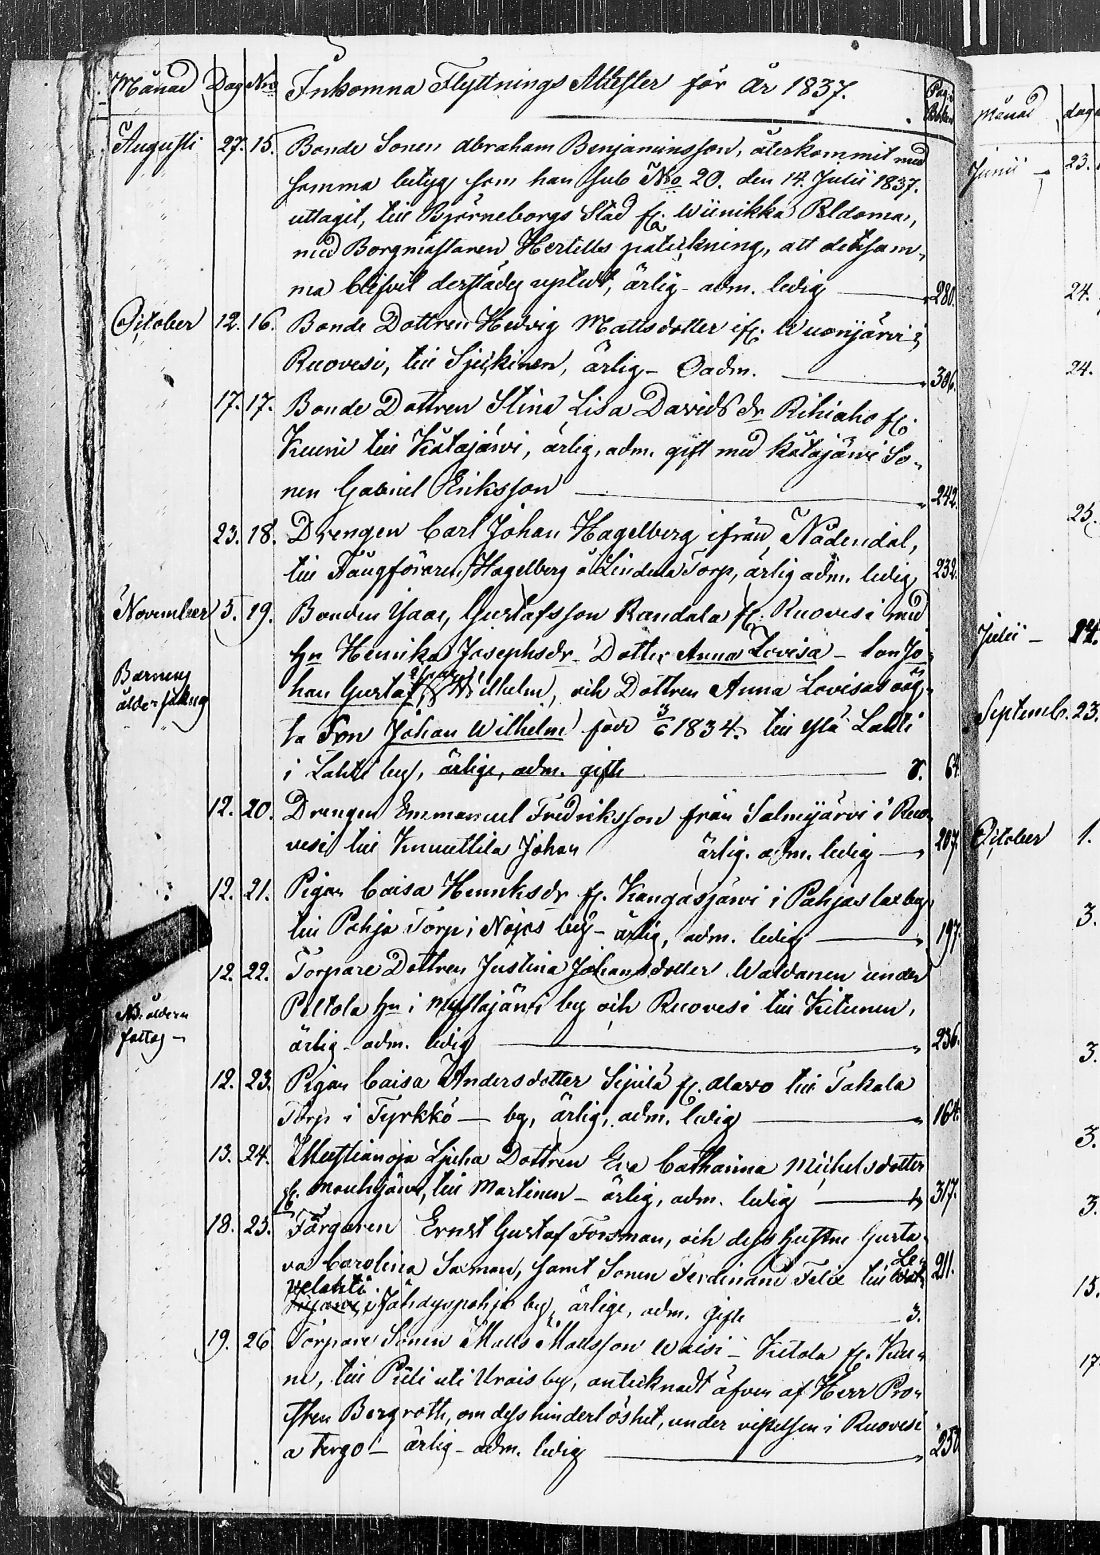 Månad Dag Nro Inkomna Flyttnings Attester för År 1837. Pag. i Boken
Augusti 27. 15. Bonde Sonen Abraham Benjaminsson, återkommit med
samma betyg som han sub No 20. den 14. Julii 1837.
uttagit, till Björneborgs Stad fr. Wiinikka Peldoma,
med Borgmästaren Hertells påteckning, att detsam-
ma blifvit derstädes upläst, ärlig - adm. ledig 280.
October 12. 16. Bonde Dottren Hedvig Mattsdotter ifr. Wuorijärvi i
Ruovesi, till Sjeikinen, ärlig - Oadm. 306.
17. 17. Bonde Dottren Stina Lisa Davids dr Rihiaho fr.
Keuru till Kätäjärvi, ärlig, adm. gift med Kätäjärvi So-
nen Gabriel Eriksson 242.
23. 18. Drengen Carl Johan Hagelberg ifrån Nådendal,
till Hagelberg å Lindula Torp, ärlig adm. ledig 232.
November 5. 19. Bonden Isaac Gustafsson Randala fr. Ruovesi med
hu Henrika Josephsdr Dotter Anna Lovisa - Son Jo-
Barnens han Gustaf Wilhelm, och Dottren Anna Lovisas oäg-
ta Son Johan Wilhelm född 3/6 1834. till Ylä Lahti
i Lahti by, ärlige, adm. gifte 8. 64.
12. 20. Drengen Emmanuel Fredriksson från Salmijärvi i Ruo-
vesi till Knuuttila Johan ärlig. adm. ledig 207.
12. 21. Pigan Caisa Henriksdr fr. Kangasjärvi i Pohjaslax by,
till Pohja Torp i by - ärlig, adm. ledig 197.
12. 22. Torpare Dottren Justina Johansdotter Waldanen under
Peltola hn i by och Ruovesi till Kitunen,
ärlig - adm. ledig 236.
12. 23. Pigan Caisa Andersdotter Sipilä fr. Alavo till Takala
Torp i Tyrkkö - by, ärlig, adm. ledig 164.
13. 24. Mustianoja Dottren Eva Catharina Michelsdotter
fr. Mouhijärvi, till Martinen - ärlig, adm. ledig 317.
18. 25. Färgaren Ernst Gustaf Forsman, och dess hustru Gusta-
va Carolina Saxman, samt Sonen Ferdinand Felix till 211.
by, ärlige, adm. gifte 3.
19. 26 Torpare Sonen Matts Mattsson Waisi - Kitola fr. Keu-
ru, till Pili uti by, antecknadt äfven af Herr Pro-
sten Bergroth, om dess hinderlöshet, under vistelsen i Ruovesi
a tergo - ärlig - adm. ledig 250
Månad dag
Junii 23.
24.
24.
25.
Julii - 14.
Septemb. 23.
October 1.
3.
3.
3.
3.
15.
17